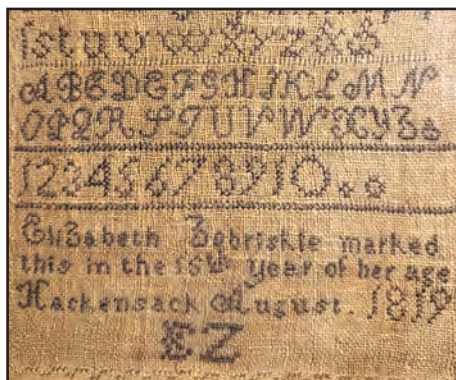 ſstuvwxyz&
ABCDEFGHIKLMN
OPQRSTUVWXYZ
12345678910
Elizabeth Zabriskie marked
this in the 15th year of her age
Hackensack August. 1819
EZ